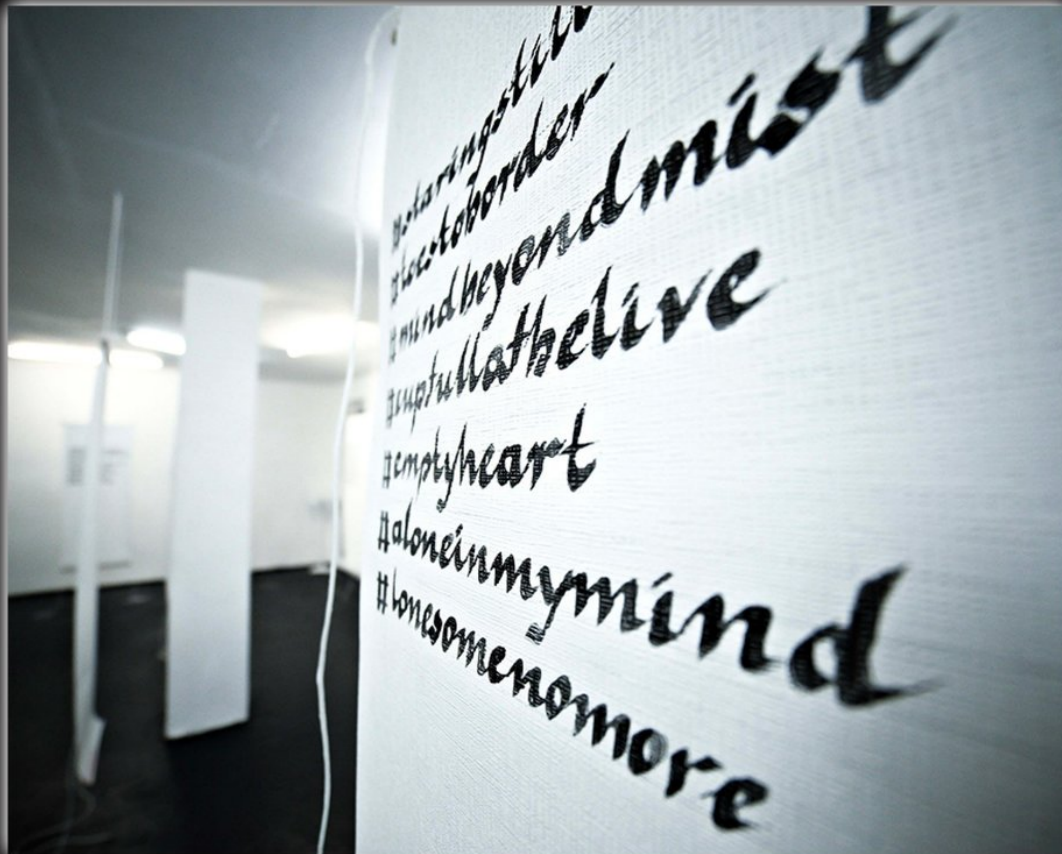 #toestoborder
#mindbeyondmist
#cupfullathelive
#emptyheart
#aloneinmymind
#lonesomenomore